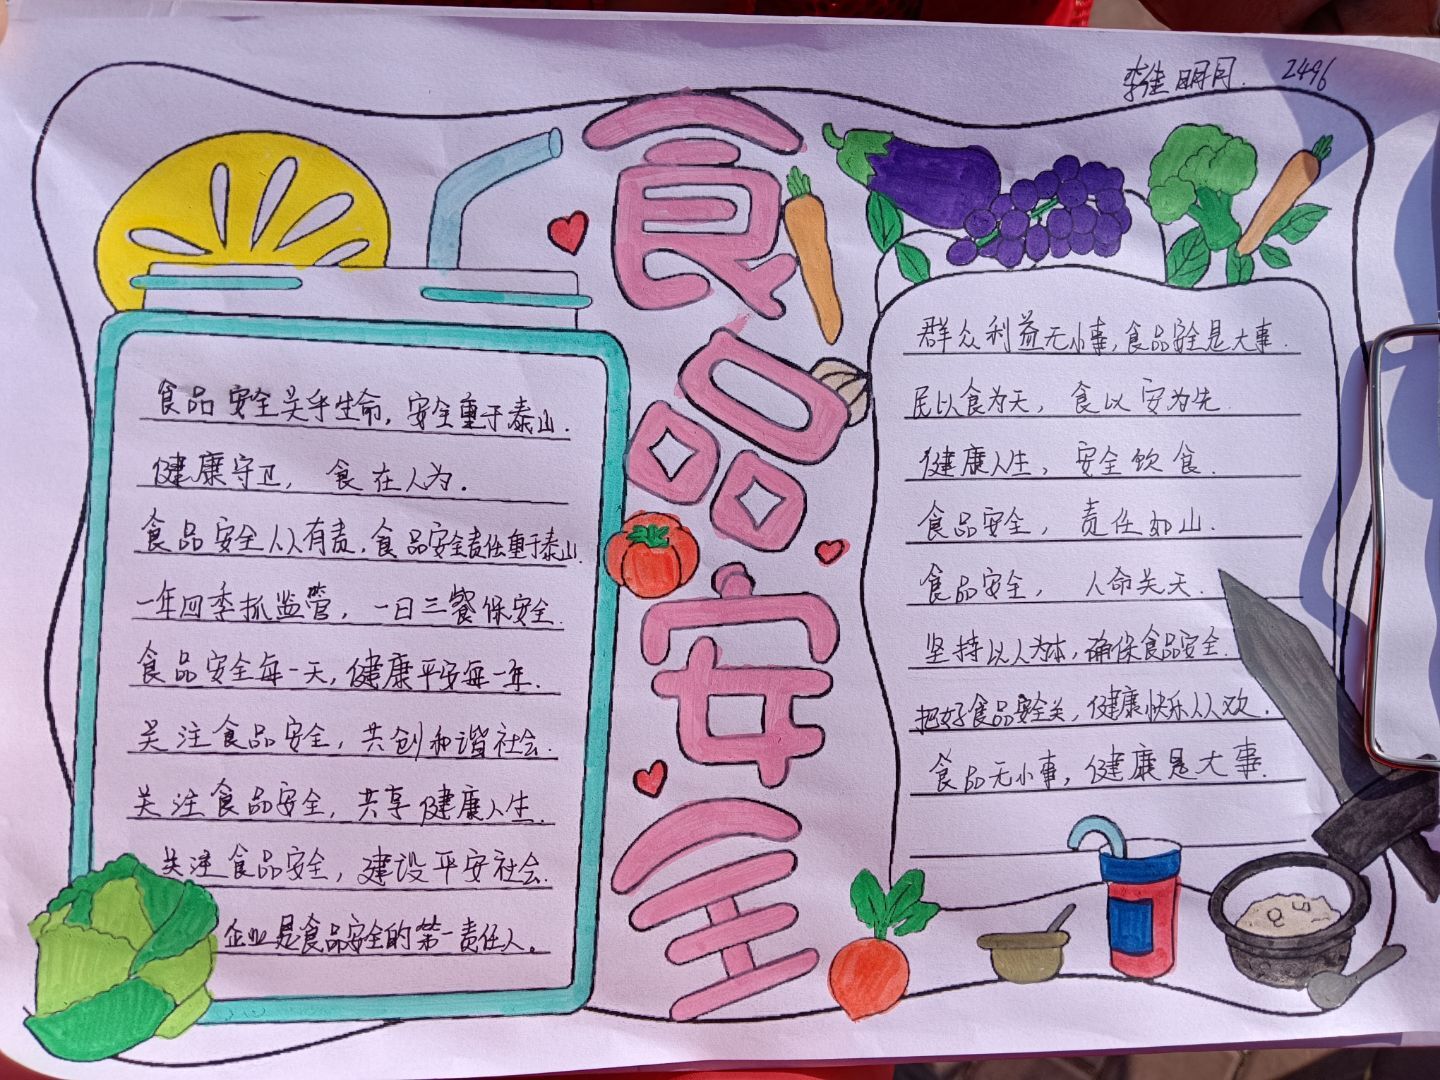 李佳明月. 2496
食品安全
食品安全关乎生命，安全重于泰山.
健康守卫，食在人为.
食品安全人人有责，食品安全责任重于泰山
一年四季抓监管，一日三餐保安全.
食品安全每一天，健康平安每一年.
关注食品安全，共创和谐社会.
关注食品安全，共享健康人生.
关注食品安全，建设平安社会.
企业是食品安全的第一责任人。
群众利益无小事，食品安全是大事.
民以食为天，食以安为先.
健康人生，安全饮食.
食品安全，责任如山.
食品安全，人命关天.
坚持以人为本，确保食品安全.
把好食品安全关，健康快乐人人欢.
食品无小事，健康是大事.